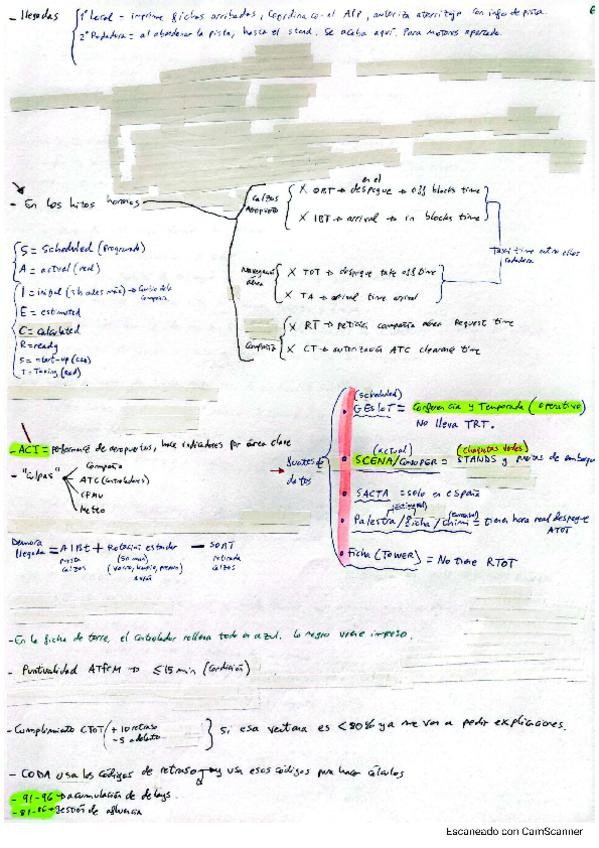 - llegadas
1º Local = imprime fichas arribadas, coordina con el APP, autoriza aterrizaje con info de pista.
2º Rodadura = al abandonar la pista, hasta el stand. Se acaba aquí. Para motores apagado.
- En los hitos horarios
Calzos Aeropuerto
en el
X OBT → despegue → off blocks time
X IBT → arrival → in blocks time
Taxi time entre ellos rodadura
S = Scheduled (Programado)
A = actual (real)
I = initial (
E = estimated
C = calculated
R = ready
S = start-up
T = Taxing
Navegación aérea
X TOT → despegue take off time
X TA → arrival time arrival
Compañía
X RT → petición compañía aérea Request time
X CT → autorización ATC clearance time
- ACI = performance de aeropuertos, hace indicadores por área clave
- "Culpas"
Compañia
ATC (controladores)
CFMU
Meteo
→ fuentes de datos
(scheduled)
GESLOT = Conferencia y Temporada (operativo)
No lleva TRT.
(actual)
(chaquetas verdes)
SCENA/CONOPER = STANDS y puertas de embarque
SACTA = solo en españa
Palestra/Ficha/ = tienen hora real despegue
ATOT
Ficha (TOWER) = No tiene RTOT
Demora llegada = AIBT + Rotación estandar − SOBT
calzos
(50 min)
retirada calzos
- En la ficha de torre, el controlador rellena todo en azul. Lo negro viene impreso.
- Puntualidad ATFCM → ≤ 15 min (condición)
- Cumplimiento CTOT
+ 10 retraso
- 5 adelanto
Si esa ventana es < 80% ya me van a pedir explicaciones.
- CODA usa los códigos de retraso → y usa esos códigos para hacer cálculos
- 91-96 → acumulación de delays.
- 81-86 → gestión de afluencia
Escaneado con CamScanner